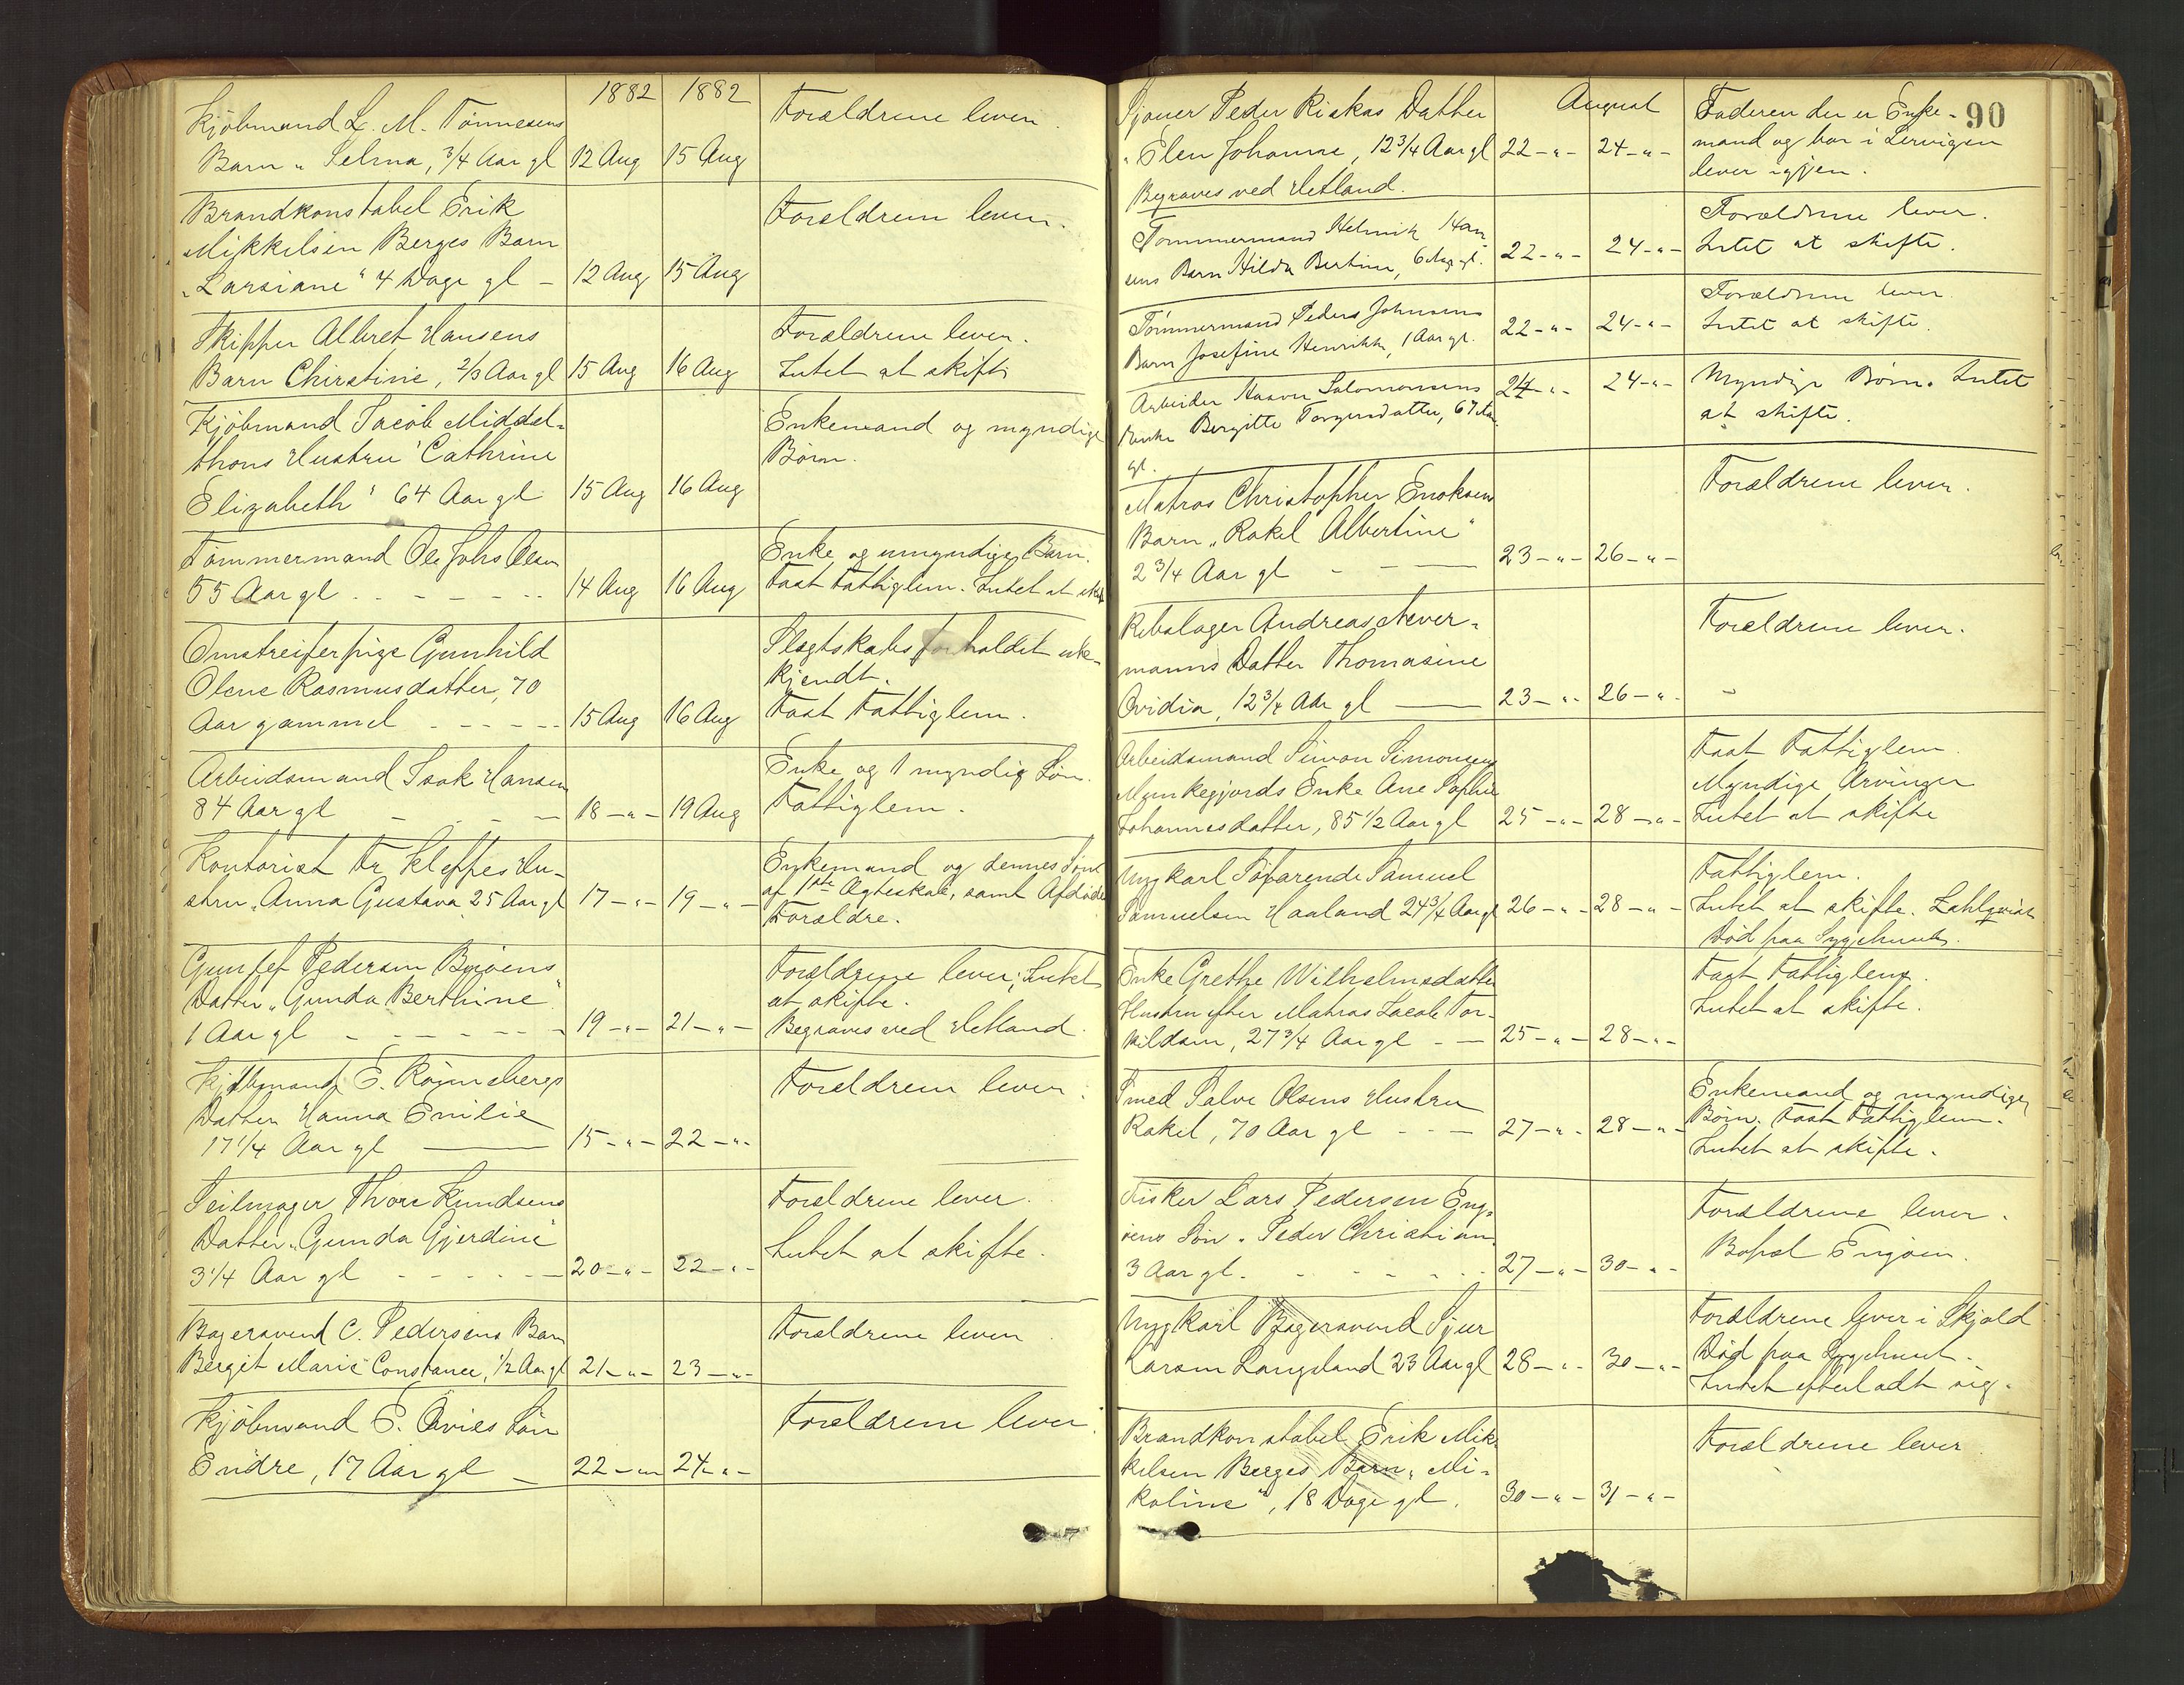 1882 1882
Kjöbmand L. M. Tönnesens Forældrene lever.
Barn „Selma, 3/4 Aar gl 12 Aug 15 Aug
Brandkonstabel Erik Forældrene lever.
Mikkelsen Berges Barn
„Larsiane“ 4 Dage gl – 12 Aug 15 Aug
Skipper Albret Hansens Forældrene lever.
Barn Chirstine, 2/3 Aar gl 15 Aug 16 Aug Intet at skifte
Kjöbmand Jacob Middel- Enkemand og myndige
thons Hustru Cathrine Börn.
Elizabeth 64 Aar gl 15 Aug 16 Aug
Tömmermand Ole Johs Olsen Enke og umyndige Barn.
55 Aar gl 14 Aug 16 Aug Fast Fattiglem. Intet at skifte
Omstreiferpige Gunhild Slægtskabsforholdet ube-
Olene Rasmusdatter, 70 kjendt.
Aar gammel 15 Aug 16 Aug Fast Fattiglem.
Arbeidsmand Isak Hansen Enke og 1 myndig Sön.
84 Aar gl 18 – „ – 19 Aug Fattiglem.
Kontorist Fr. Kleppes Hu- Enkemand og dennes Sön
stru „Anna Gustava 25 Aar gl 17 – „ – 19 – „ – af 1ste Ægteskab, samt Afdöde
Forældre.
Pedersen Forældrene lever; Intet
Datter „Gunda Berthine“ at skifte.
1 Aar gl 19 – „ – 21 – „ – Begraves ved Hetland.
Kjöbmand E. Rönnebergs Forældrene lever.
Datter Hanna Emilie
17 1/4 Aar gl 15 – „ – 22 – „ –
Seilmager Thore Knudsens Forældrene lever.
Datter „Gunda Gjerdine“
3 1/4 Aar gl 20 – „ – 22 – „ – Intet at skifte.
Bagersvend C. Pedersens Barn Forældrene lever
Bergit Marie Constance, 1/2 Aar gl 21 – „ – 23 – „ –
Kjöbmand E. Qvies Sön Forældrene lever.
Endre, 17 Aar gl – 22 – „ – 24 – „ –
90
Sjouer Peder Riskas Datter August Faderen der er Enke-
„Elen Johanne, 12 3/4 Aar gl 22 – „ – 24 – „ – mand og bor i Lervigen
Begraves ved Hetland. lever igjen.
Tömmermand Helmik Han Forældrene lever.
sens Barn Hilda Bertine, 6 gl. 22 – „ – 24 – „ – Intet at skifte.
Tömmermand Peder Johnsens Forældrene lever
Barn Josefine Henrikke, 1 Aar gl. 22 – „ – 24 – „ – Intet at skifte.
Arbeider Haavor Salomonsens 24 – „ – 24 – „ – Myndige Börn. Intet
Enke Bergitte Torgersdatter, 67 Aar at skifte.
gl.
Matros Christopher Enoksens Forældrene lever.
Barn „Rakel Albertine“
2 3/4 Aar gl – – 23 – „ – 26 – „ –
Rebslager Andreas Never- Forældrene lever.
manns Datter Thomasine
Ovidia, 12 3/4 Aar gl – 23 – „ – 26 – „ –
Arbeidsmand Simon Simonsen Fast Fattiglem.
Munkegjords Enke Ane Sophie Myndige Arvinger
Johannesdatter, 85 1/2 Aar gl 25 – „ – 28 – „ – Intet at skifte
Ungkarl Söfarende Samuel Fattiglem.
Samuelsen Haaland 24 3/4 Aar gl 26 – „ – 28 – „ – Intet at skifte. Zahlqvist
Död paa Sygehuset.
Enke Grethe Wilhelmsdatter Fast Fattiglem.
Hustru efter Matros Jacob Tor- Intet at skifte.
kildsen, 27 3/4 Aar gl – – 25 – „ – 28 – „ –
Smed Salve Olsens Hustru Enkemand og myndige
Rakel, 70 Aar gl – – 27 – „ – 28 – „ – Börn. Fast Fattiglem.
Intet at skifte.
Fisker Lars Pedersen Eng- Forældrene lever.
öens Sön „Peder Christian Bopæl Engöen.
3 Aar gl. 27 – „ – 30 – „ –
Ungkarl Bagersvend Sjur Forældrene lever i Skjold
Larsen Langeland 23 Aar gl 28 – „ – 30 – „ – Död paa Sygehuset.
Intet efterladt sig.
Brandkonstabel Erik Mik- Forældrene lever
kelsen Berges Barn „Mi-
koline“, 18 Dage gl. 30 – „ – 31 – „ –